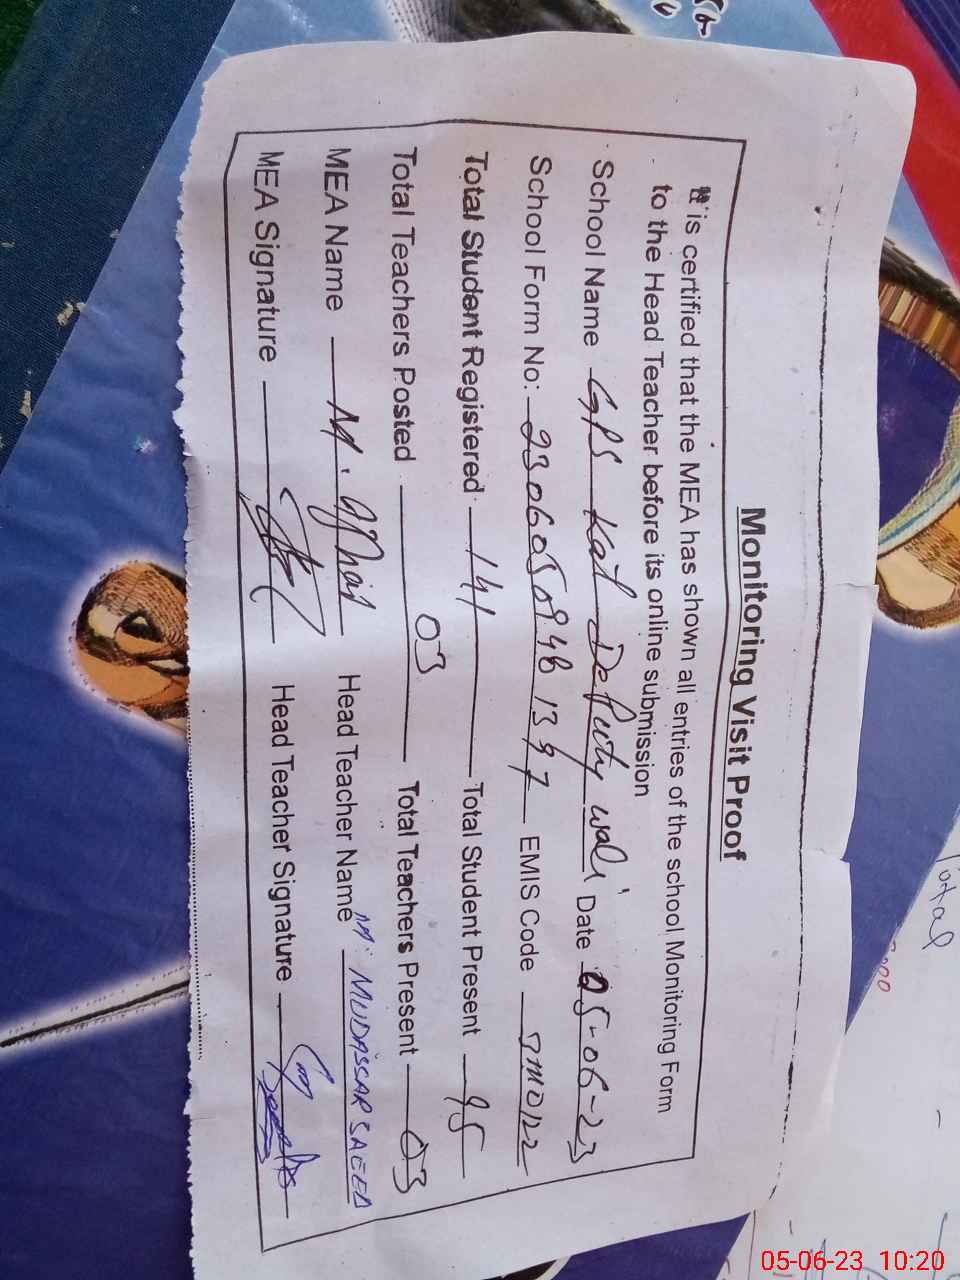 Monitoring Visit Proof
It is certified that the MEA has shown all entries of the school Monitoring Form
to the Head Teacher before its online submission
School Name GPS Kot Deputy wali Date 05-06-23
School Form No: 2306050948 1397 EMIS Code
Total Student Registered 141 Total Student Present 95
Total Teachers Posted 03 Total Teachers Present 03
MEA Name M. Head Teacher Name M. MUDASSAR SAEED
MEA Signature Head Teacher Signature
Total
05-06-23 10:20